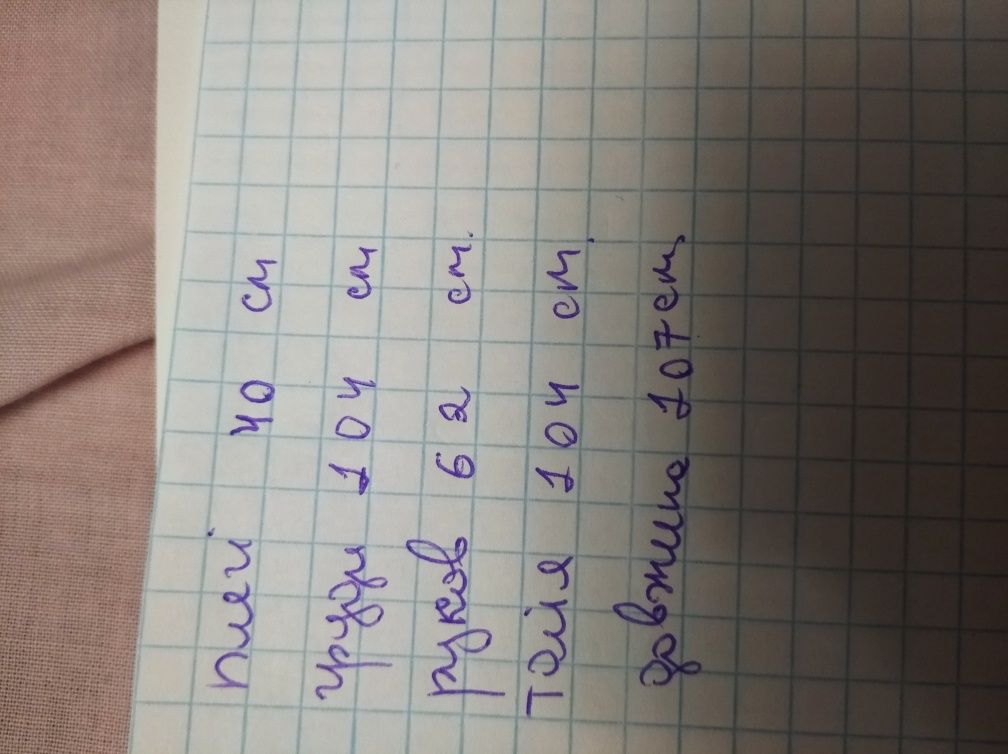 плечі 40 см
груди 104 см
руков 62 см.
талія 104 см.
довжина 107 см,